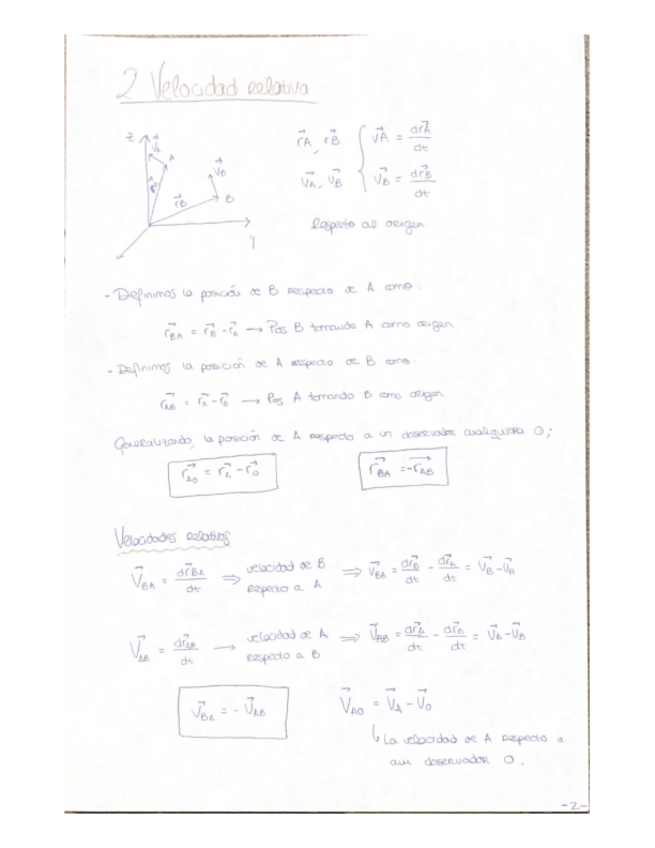 2 Velocidad relativa
Z
V⃗A A
r⃗A
V⃗B
r⃗B B
Y
r⃗A, r⃗B { V⃗A = dr⃗A/dt
V⃗A, V⃗B { V⃗B = dr⃗B/dt
Respecto al origen.
- Definimos la posición de B respecto de A como:
r⃗BA = r⃗B - r⃗A → Pos B tomando A como origen.
- Definimos la posición de A respecto de B como:
r⃗AB = r⃗A - r⃗B → Pos A tomando B como origen
Generalizando, la posición de A respecto a un observador cualquiera O;
r⃗AO = r⃗A - r⃗O r⃗BA = -r⃗AB
Velocidades relativas
V⃗BA = dr⃗BA/dt ⇒ velocidad de B respecto a A ⇒ V⃗BA = dr⃗B/dt - dr⃗A/dt = V⃗B - V⃗A
V⃗AB = dr⃗AB/dt → velocidad de A respecto a B ⇒ V⃗AB = dr⃗A/dt - dr⃗B/dt = V⃗A - V⃗B
V⃗BA = - V⃗AB V⃗AO = V⃗A - V⃗O
↳ La velocidad de A respecto a
aun observador O.
-2-